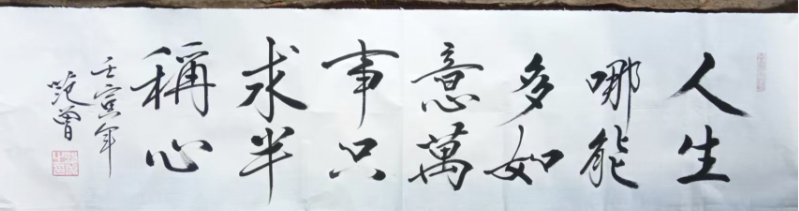 人生
哪能
多如
意萬
事只
求半
稱心
壬寅年
范曾